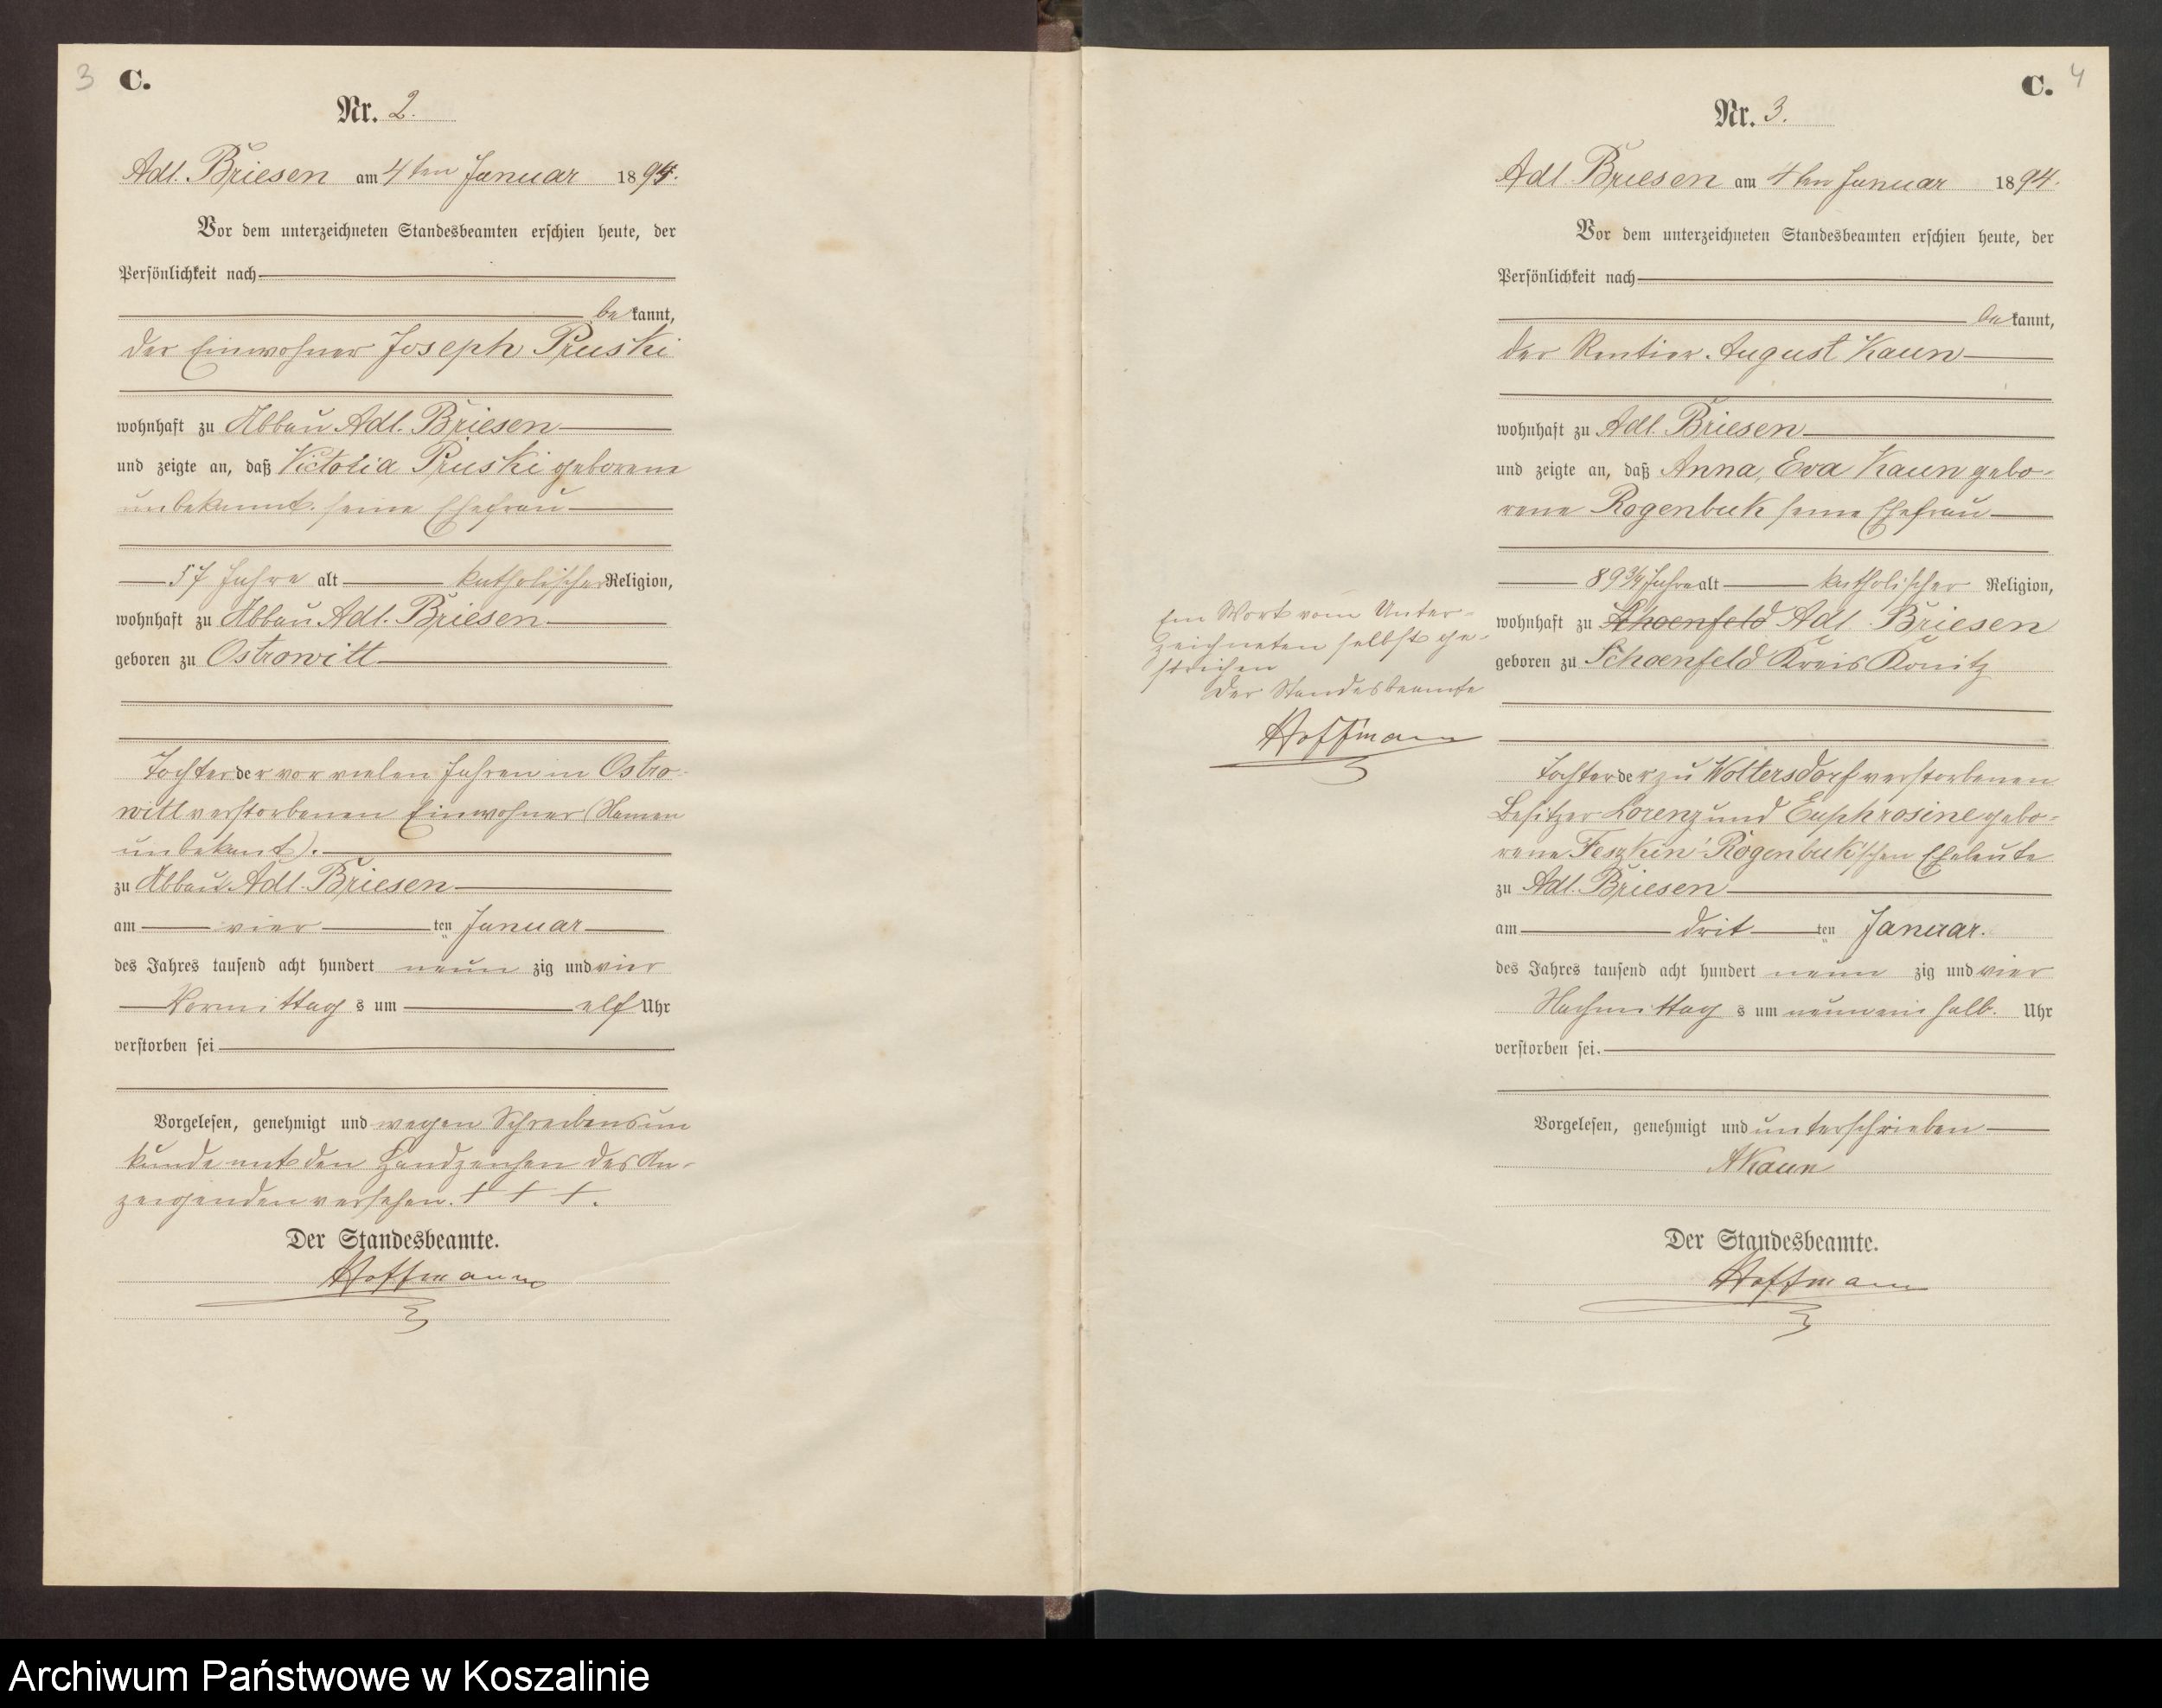 3 C.
Nr. 2.
Adl. Briesen am 4ten Januar 1894.
Vor dem unterzeichneten Standesbeamten erschien heute, der
Persönlichkeit nach
be kannt,
der Einwohner Joseph Pruski
wohnhaft zu Abbau Adl. Briesen
und zeigte an, daß Victoria Pruski geborene
unbekannt. seine Ehefrau
57 Jahre alt katholischer Religion,
wohnhaft zu Abbau Adl. Briesen
geboren zu Ostrowitt
Tochter der vor vielen Jahren in Ostro-
witt verstorbenen Einwohner (Namen
unbekant).
zu Abbau Adl. Briesen
am vier ten Januar
des Jahres tausend acht hundert neun zig und vier
Vormittag s um elf Uhr
verstorben sei
Vorgelesen, genehmigt und wegen Schreibensun
kunde mit den Handzeichen des An-
zeigenden versehen. + + +.
Der Standesbeamte.
Hoffmann
C. 4
Nr. 3.
Adl. Briesen am 4ten Januar 1894.
Vor dem unterzeichneten Standesbeamten erschien heute, der
Persönlichkeit nach
be kannt,
der Rentier August Kaun
wohnhaft zu Adl. Briesen
und zeigte an, daß Anna, Eva Kaun gebo-
rene Rogenbuk seine Ehefrau
89 3/4 Jahre alt katholischer Religion,
wohnhaft zu Schoenfeld Adl. Briesen
geboren zu Schoenfeld Kreis Konitz
Tochter der zu Woltersdorf verstorbenen
Besitzer Lorenz und Euphrosine gebo-
rene Feszkin' Rogenbuk'schen Eheleute
zu Adl. Briesen
am drit ten Januar.
des Jahres tausend acht hundert neun zig und vier
Nachmittag s um neun ein halb. Uhr
verstorben sei.
Vorgelesen, genehmigt und unterschrieben
AKaun
Der Standesbeamte.
Hoffmann
Ein Wort vom Unter-
zeichneten selbst ge-
strichen
Der Standesbeamte
Hoffmann
Archiwum Państwowe w Koszalinie